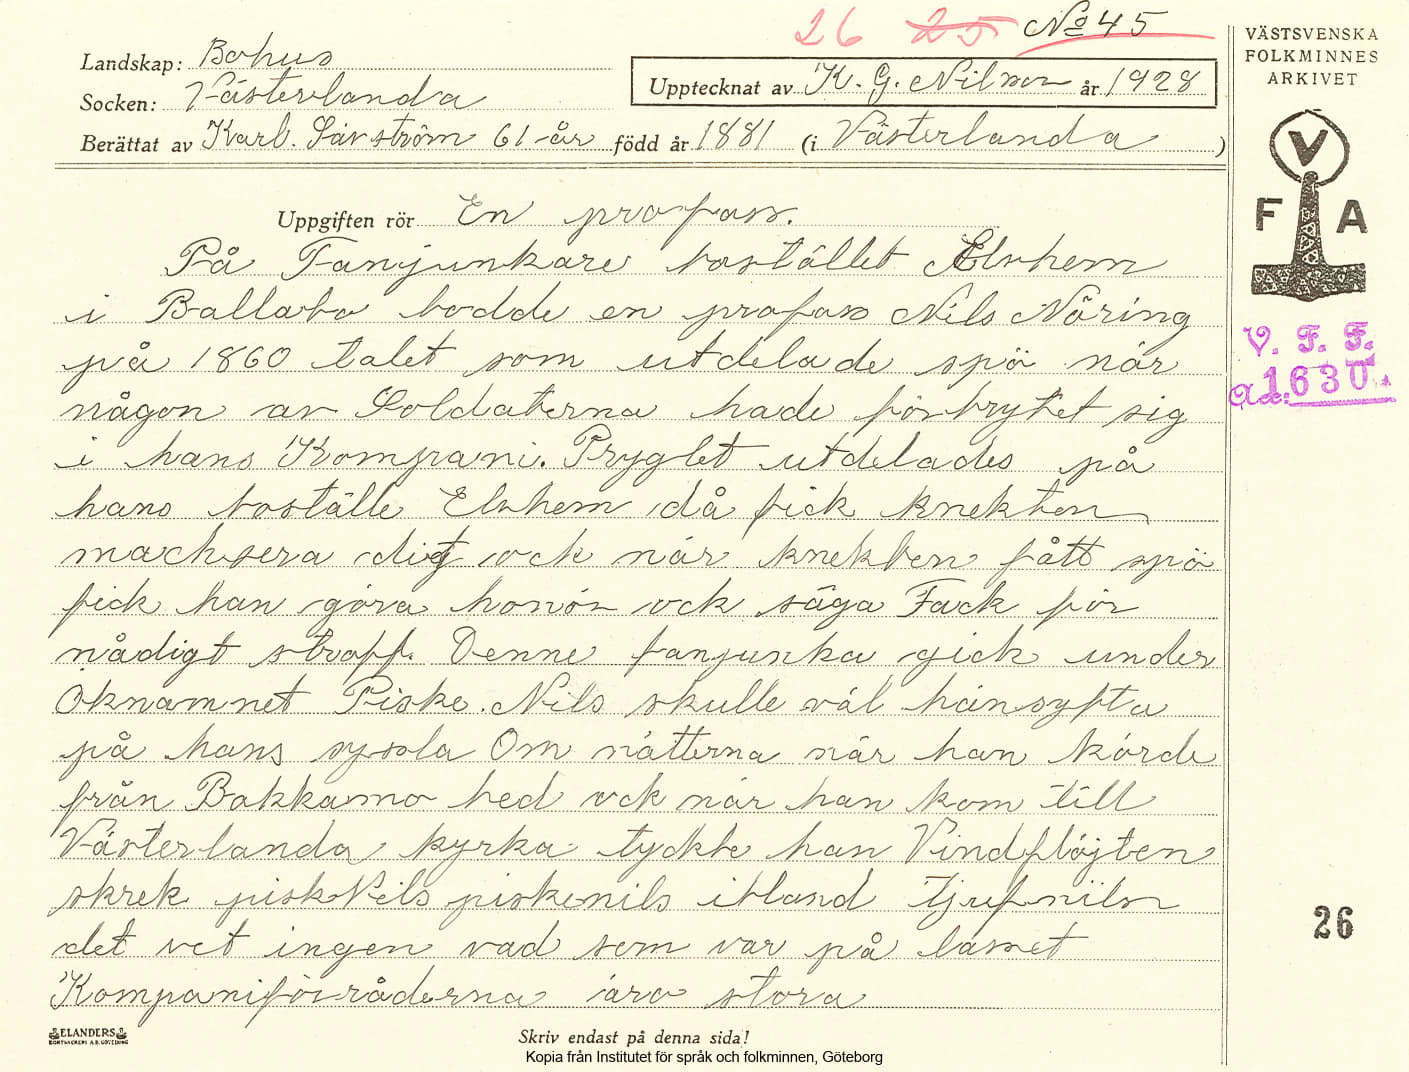 26 25 No 45
VÄSTSVENSKA
FOLKMINNES
ARKIVET
Landskap: Bohus
Socken: Västerlanda
Upptecknat av K. G. Nilson år 1928
Berättat av Karl. Sävström 61-år född år 1881 (i Västerlanda)
V
F A
Uppgiften rör En profoss.
På Fanjunkare bostället Elvhem
i Ballabo bodde en profoss Nils Näring
på 1860 talet som utdelade spö när
någon av Soldaterna hade förbrytet sig
i hans Kompani. Pryglet utdelades på
hans boställe Elvhem då fick knekten
machsera dit ock när knekten fått spö
fick han göra honör ock säga Tack för
nådigt straff. Denne fanjunka gick under
Öknamnet Piske. Nils skulle väl hänsyfta
på hans syssla Om nätterna när han körde
från Bakkamo hed ock när han kom till
Västerlanda kyrka tyckte han Vindflöjten
skrek piskNils piskenils ibland Tjufnils
det vet ingen vad som var på lasset
Kompaniförråderna äro stora
V. F. F.
Ac: 1630
26
ELANDERS
BOKTRYCKERI A.B. GÖTEBORG
Skriv endast på denna sida!
Kopia från Institutet för språk och folkminnen, Göteborg